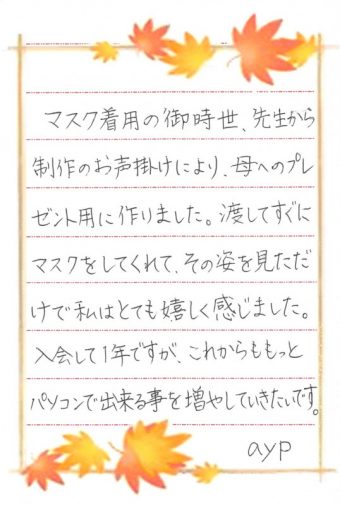 マスク着用の御時世、先生から
制作のお声掛けにより、母へのプレ
ゼント用に作りました。渡してすぐに
マスクをしてくれて、その姿を見ただ
けで私はとても嬉しく感じました。
入会して1年ですが、これからももっと
パソコンで出来る事を増やしていきたいです。
ayp